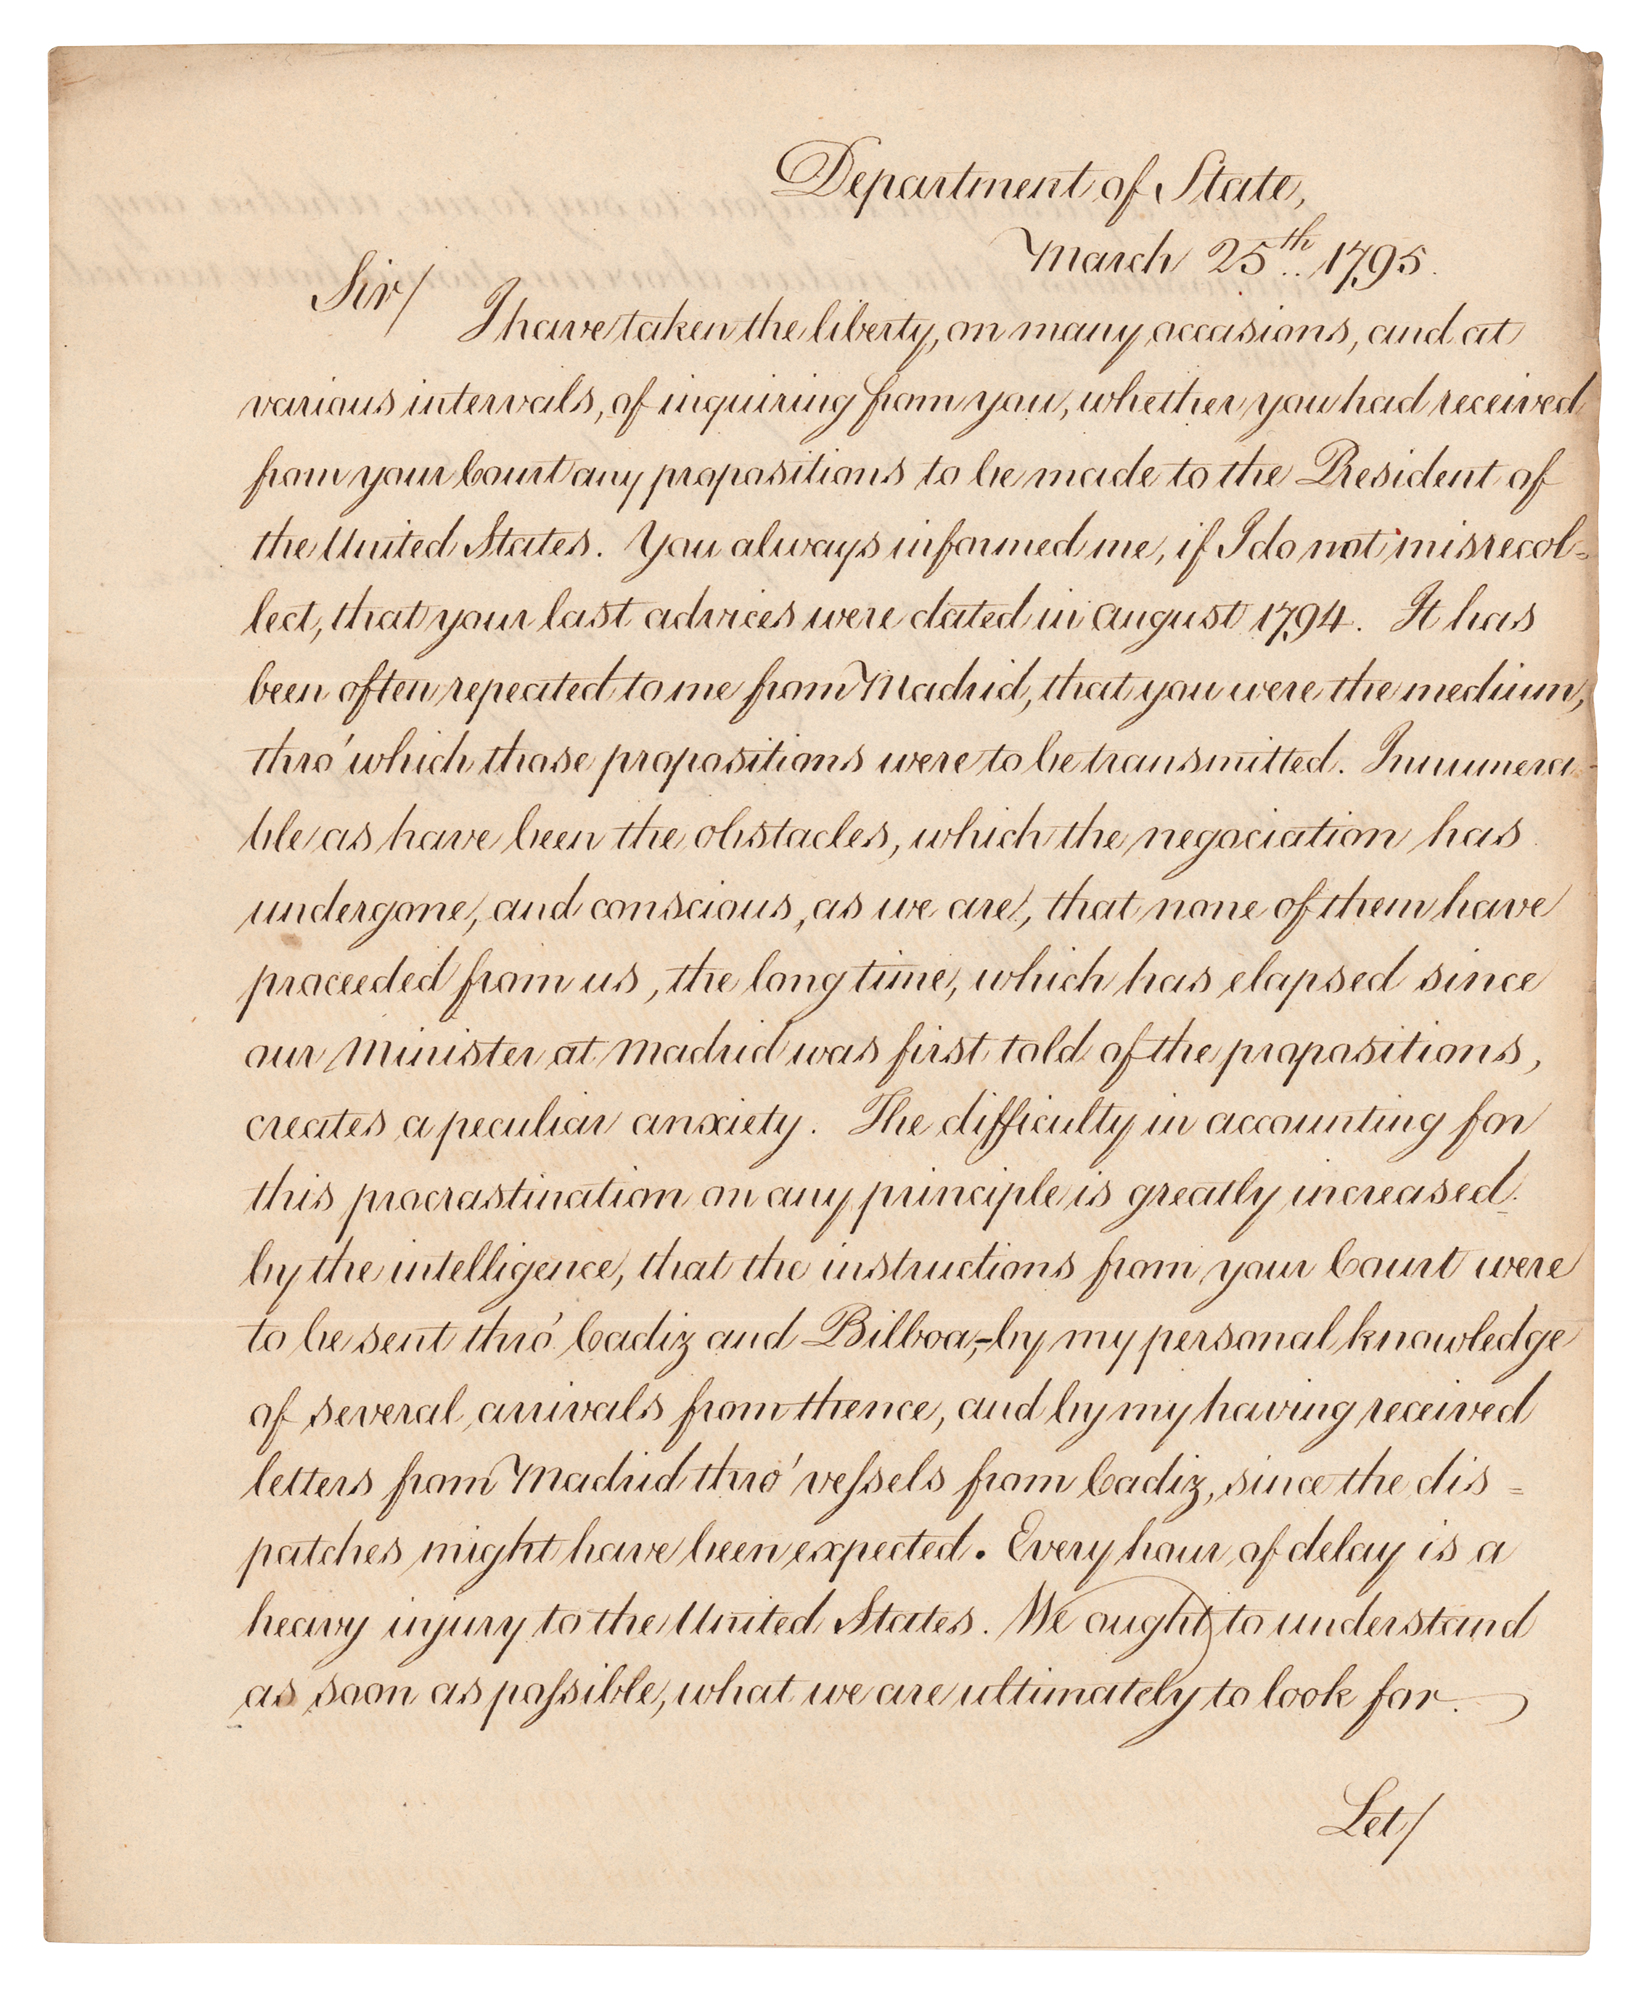 Department of State,
March 25th 1795.
Sir/ I have taken the liberty, on many occasions, and at
various intervals, of inquiring from you, whether you had received
from your Court any propositions to be made to the President of
the United States. You always informed me, if I do not misrecol=
lect, that your last advices were dated in August 1794. It has
been often repeated to me from Madrid, that you were the medium,
thro' which those propositions were to be transmitted. Innumera-
ble as have been the obstacles, which the negociation has
undergone, and conscious, as we are, that none of them have
proceeded from us, the long time, which has elapsed since
our Minister at Madrid was first told of the propositions,
creates a peculiar anxiety. The difficulty in accounting for
this procrastination on any principle is greatly increased
by the intelligence, that the instructions from your Court were
to be sent thro' Cadiz and Bilboa,-by my personal knowledge
of several arrivals from thence, and by my having received
letters from Madrid thro' veſsels from Cadiz, since the dis=
patches might have been expected. Every hour of delay is a
heavy injury to the United States. We ought to understand
as soon as poſsible, what we are ultimately to look for.
Let/